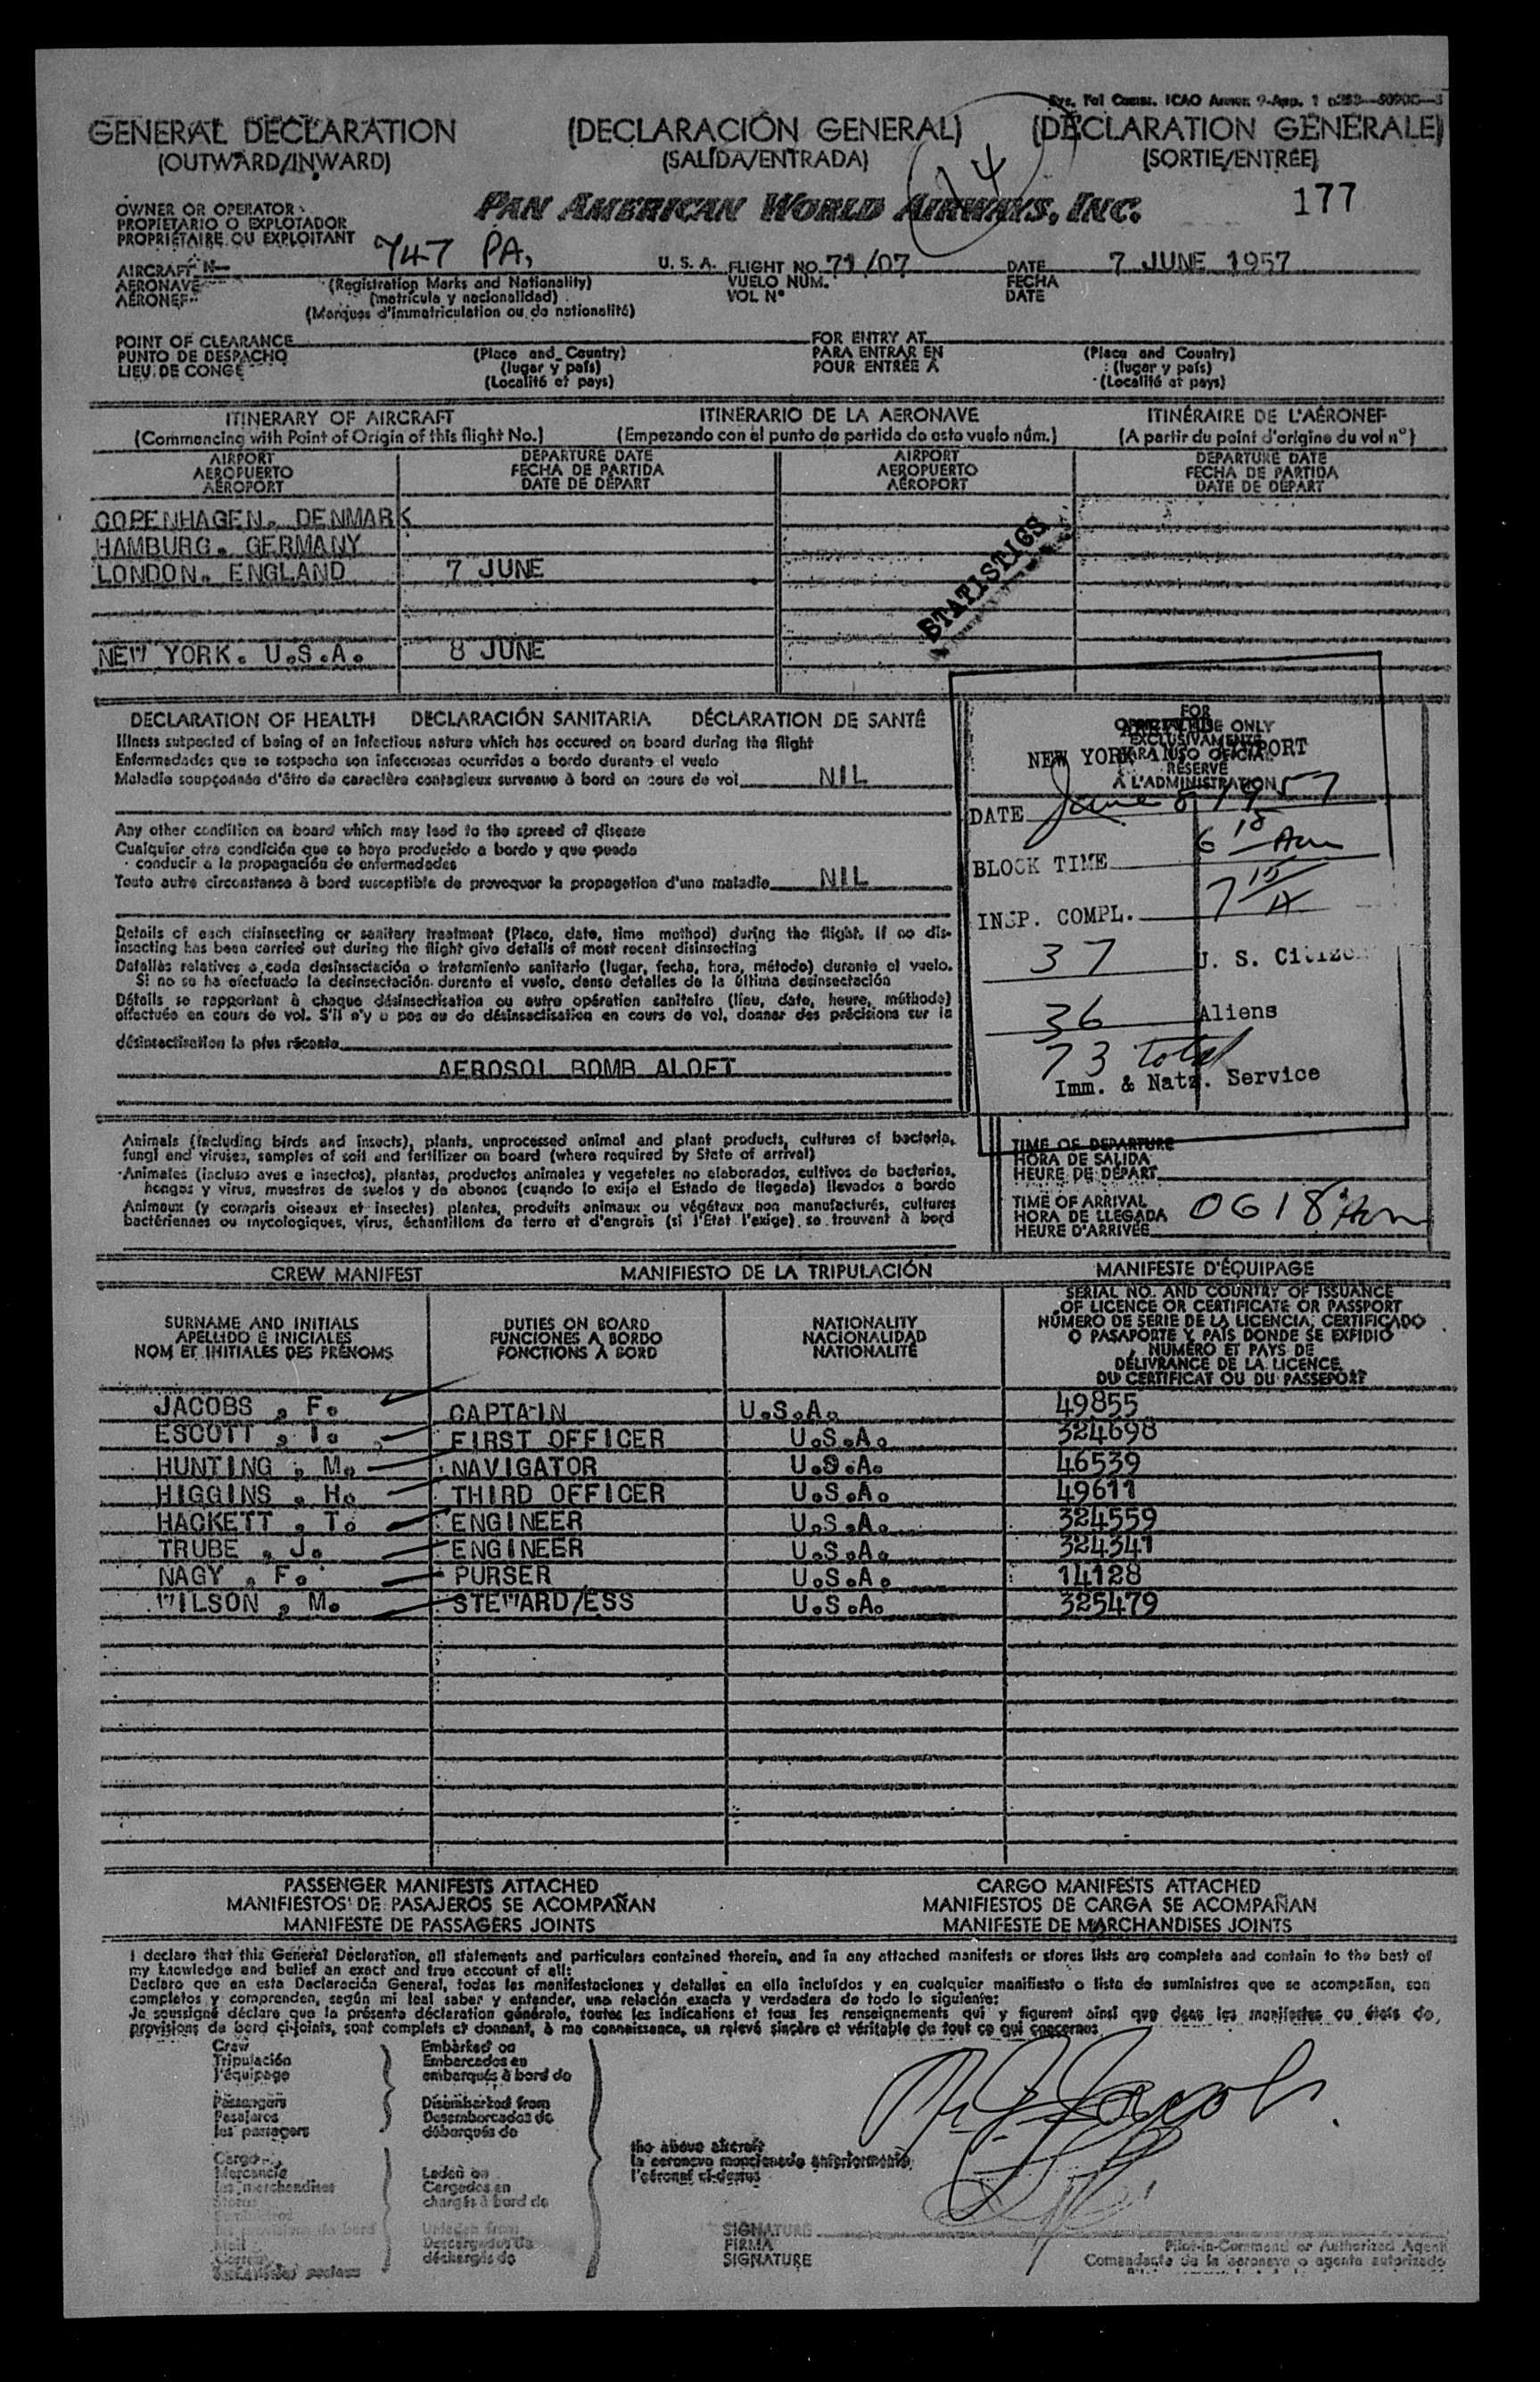 GENERAL DECLARATION (DECLARACIÓN GENERAL) (DÉCLARATION GÉNÉRALE)
(OUTWARD/INWARD) (SALIDA/ENTRADA) (SORTIE/ENTRÉE)
14
177
PAN AMERICAN WORLD AIRWAYS, INC.
OWNER OR OPERATOR
PROPIETARIO O EXPLOTADOR
PROPRIÉTAIRE OU EXPLOITANT
AIRCRAFT N- 747 PA, U. S. A. FLIGHT NO. 71/07 DATE 7 JUNE 1957
AERONAVE (Registration Marks and Nationality) VUELO NÚM. FECHA
AÉRONEF (matrícula y nacionalidad) VOL Nº DATE
(Marques d'immatriculation ou de nationalité)
POINT OF CLEARANCE FOR ENTRY AT
PUNTO DE DESPACHO (Place and Country) PARA ENTRAR EN (Place and Country)
LIEU DE CONGÉ (lugar y país) POUR ENTRÉE À (lugar y país)
(Localité et pays) (Localité et pays)
ITINERARY OF AIRCRAFT ITINERARIO DE LA AERONAVE ITINÉRAIRE DE L'AÉRONEF
(Commencing with Point of Origin of this flight No.) (Empezando con el punto de partida de este vuelo núm.) (A partir du point d'origine du vol nº)
AIRPORT DEPARTURE DATE AIRPORT DEPARTURE DATE
AEROPUERTO FECHA DE PARTIDA AEROPUERTO FECHA DE PARTIDA
AÉROPORT DATE DE DÉPART AÉROPORT DATE DE DÉPART
COPENHAGEN. DENMARK
HAMBURG. GERMANY
LONDON. ENGLAND 7 JUNE
STATISTICS
NEW YORK. U.S.A. 8 JUNE
DECLARATION OF HEALTH DECLARACIÓN SANITARIA DÉCLARATION DE SANTÉ
Illness suspected of being of an infectious nature which has occured on board during the flight
Enfermedades que se sospecha son infecciosas ocurridas a bordo durante el vuelo
Maladie soupçonnée d'être de caractère contagieux survenue à bord en cours de vol NIL
Any other condition on board which may lead to the spread of disease
Cualquier otra condición que se haya producido a bordo y que pueda
conducir a la propagación de enfermedades
Toute autre circonstance à bord susceptible de provoquer la propagation d'une maladie NIL
Details of each disinsecting or sanitary treatment (Place, date, time method) during the flight. If no dis-
insecting has been carried out during the flight give details of most recent disinsecting
Detalles relativos a cada desinsectación o tratamiento sanitario (lugar, fecha, hora, método) durante el vuelo.
Si no se ha efectuado la desinsectación durante el vuelo, dense detalles de la última desinsectación
Détails se rapportant à chaque désinsectisation ou autre opération sanitaire (lieu, date, heure, méthode)
effectuée en cours de vol. S'il n'y a pas eu de désinsectisation en cours de vol, donner des précisions sur la
désinsectisation la plus récente
AEROSOL BOMB ALOFT
FOR
OFFICIAL USE ONLY
EXCLUSIVAMENTE
PARA USO OFICIAL
RÉSERVÉ
À L'ADMINISTRATION
NEW YORK AIRPORT
DATE June 8, 1957
BLOCK TIME 6 18 Am
INSP. COMPL. 7 15 A
37 U. S. Citizen
36 Aliens
73 total
Imm. & Natz. Service
Animals (including birds and insects), plants, unprocessed animal and plant products, cultures of bacteria,
fungi and viruses, samples of soil and fertilizer on board (where required by State of arrival)
Animales (incluso aves e insectos), plantas, productos animales y vegetales no elaborados, cultivos de bacterias,
hongos y virus, muestras de suelos y de abonos (cuando lo exija el Estado de llegada) llevados a bordo
Animaux (y compris oiseaux et insectes) plantes, produits animaux ou végétaux non manufacturés, cultures
bactériennes ou mycologiques, virus, échantillons de terre et d'engrais (si l'État l'exige) se trouvant à bord
TIME OF DEPARTURE
HORA DE SALIDA
HEURE DE DÉPART
TIME OF ARRIVAL
HORA DE LLEGADA 0618 Am
HEURE D'ARRIVÉE
CREW MANIFEST MANIFIESTO DE LA TRIPULACIÓN MANIFESTE D'ÉQUIPAGE
SURNAME AND INITIALS
APELLIDO E INICIALES
NOM ET INITIALES DES PRÉNOMS
DUTIES ON BOARD
FUNCIONES A BORDO
FONCTIONS À BORD
NATIONALITY
NACIONALIDAD
NATIONALITÉ
SERIAL NO. AND COUNTRY OF ISSUANCE
OF LICENCE OR CERTIFICATE OR PASSPORT
NÚMERO DE SERIE DE LA LICENCIA, CERTIFICADO
O PASAPORTE Y PAÍS DONDE SE EXPIDIÓ
NUMÉRO ET PAYS DE
DÉLIVRANCE DE LA LICENCE
DU CERTIFICAT OU DU PASSEPORT
JACOBS , F. CAPTAIN U.S.A. 49855
ESCOTT , I. FIRST OFFICER U.S.A. 324698
HUNTING , M. NAVIGATOR U.S.A. 46539
HIGGINS , H. THIRD OFFICER U.S.A. 49611
HACKETT , T. ENGINEER U.S.A. 324559
TRUBE , J. ENGINEER U.S.A. 324341
NAGY , F. PURSER U.S.A. 14128
WILSON , M. STEWARD/ESS U.S.A. 325479
PASSENGER MANIFESTS ATTACHED CARGO MANIFESTS ATTACHED
MANIFIESTOS DE PASAJEROS SE ACOMPAÑAN MANIFIESTOS DE CARGA SE ACOMPAÑAN
MANIFESTE DE PASSAGERS JOINTS MANIFESTE DE MARCHANDISES JOINTS
I declare that this General Declaration, all statements and particulars contained therein, and in any attached manifests or stores lists are complete and contain to the best of
my knowledge and belief an exact and true account of all:
Declaro que en esta Declaración General, todas las manifestaciones y detalles en ella incluídos y en cualquier manifiesto o lista de suministros que se acompañan, son
completos y comprenden, según mi leal saber y entender, una relación exacta y verdadera de todo lo siguiente:
Je soussigné déclare que la présente déclaration générale, toutes les indications et tous les renseignements qui y figurent ainsi que dans les manifestes ou états de
provisions de bord ci-joints, sont complets et donnent, à ma connaissance, un relevé sincère et véritable de tout ce qui concerne
Crew Embarked on
Tripulación Embarcados en
l'équipage embarqués à bord de
Passengers Disembarked from
Pasajeros Desembarcados de
les passagers débarqués de
the above aircraft
la aeronave mencionada anteriormente
l'aéronef ci-dessus
Cargo
Mercancía Laden on
les merchandises Cargados en
Stores chargés à bord de
Unladen from
Mail Descargados de
déchargés de
SIGNATURE
FIRMA Pilot-in-Command or Authorized Agent
SIGNATURE Comandante de la aeronave o agente autorizado